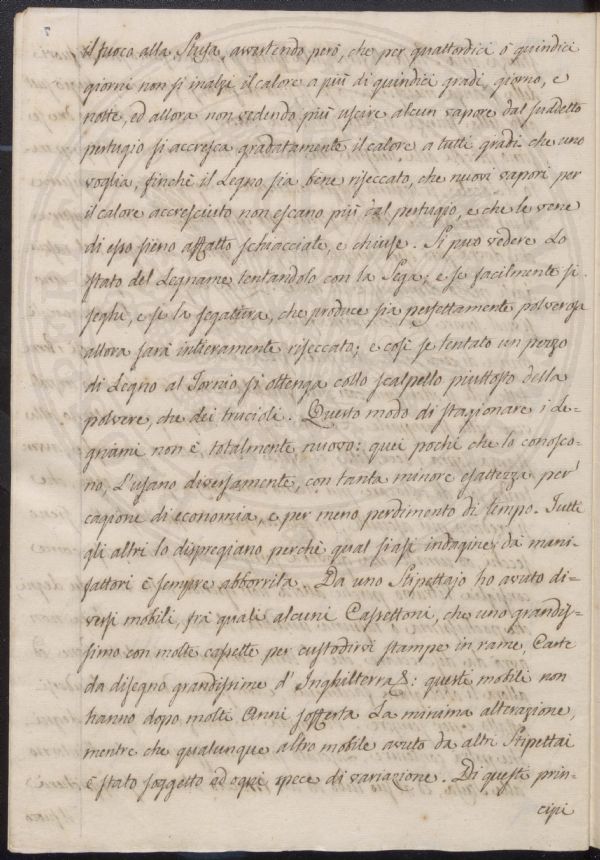 7
il fuoco alla Stufa, avvertendo però, che per quattordici o quindici
giorni non si inalzi il calore a più di quindici gradi, giorno, e
notte, ed allora non vedendo più uscire alcun vapore dal suddetto
pertugio si accresca gradatamente il calore a tutti gradi che uno
voglia, finchè il Legno sia bene riseccato, che nuovi vapori per
il calore accresciuto non escano più dal pertugio, e che le vene
di esso sieno affatto schiacciate, e chiuse. Si puo vedere Lo
stato del Legname tentandolo con la Sega; e se facilmente si
seghi, e se la segattura, che produce sia perfettamente polverosa
allora sarà intieramente riseccato; e così se tentato un pezzo
di Legno al Tornio si ottenga collo scalpello piuttosto della
polvere, che dei trucioli. Questo modo di stagionare i Le-
gnami non è totalmente nuovo: quei pochi che lo conosco-
no, L'usano diversamente, con tanta minore esattezza per
cagione di economia, e per meno perdimento di tempo. Tutti
gli altri lo dispregiano perchè qual siasi indagine da mani-
fattori è sempre abborrita. Da uno Stipettajo ho avuto di-
versi mobili, frà quali alcuni Cassettoni, che uno grandis-
simo con molte cassette per custodirvi stampe in rame, Carte
da disegno grandissime d'Inghilterra &: questi mobili non
hanno dopo molti Anni sofferta La minima alterazione,
mentre che qualunque altro mobile avuto da altri Stipettai
è stato soggetto ad ogni spece di variazione. Di questi prin-
cipi